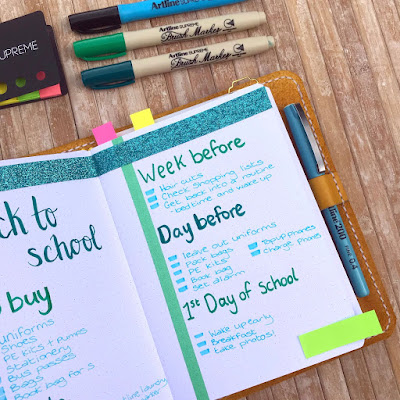 SUPREME
Artline SUPREME
Artline SUPREME
Brush Marker
Artline SUPREME
Brush Marker
ck to
school
buy
uniforms
Shoes
PE kits + Pumps
Stationery
Bus passes
Bags
Book bag for S
Week before
Hair cuts
Check shopping lists
Get back into a routine
- bedtime and wake up
Day before
leave out uniforms
Pack bags
PE kits
Book bag
Set alarm
Top up fones
Charge phones
1st Day of school
Wake up early
Breakfast
take photos!
line 200
0.4